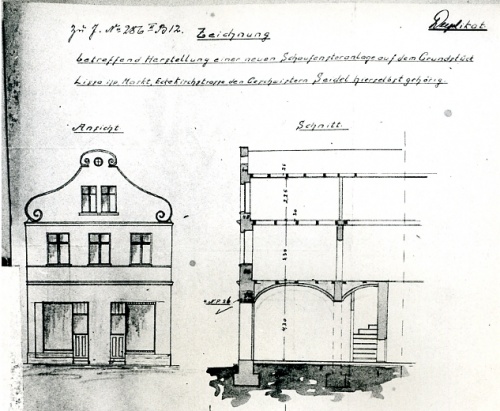 Zu J. No 286 II B 12. Zeichnung Duplikat.
betreffend Herstellung einer neuen Schaufensteranlage auf dem Grundstück
am Markt, Ecke Kirchstrasse den Geschwistern Seidel hierselbst gehörig.
Ansicht Schnitt.